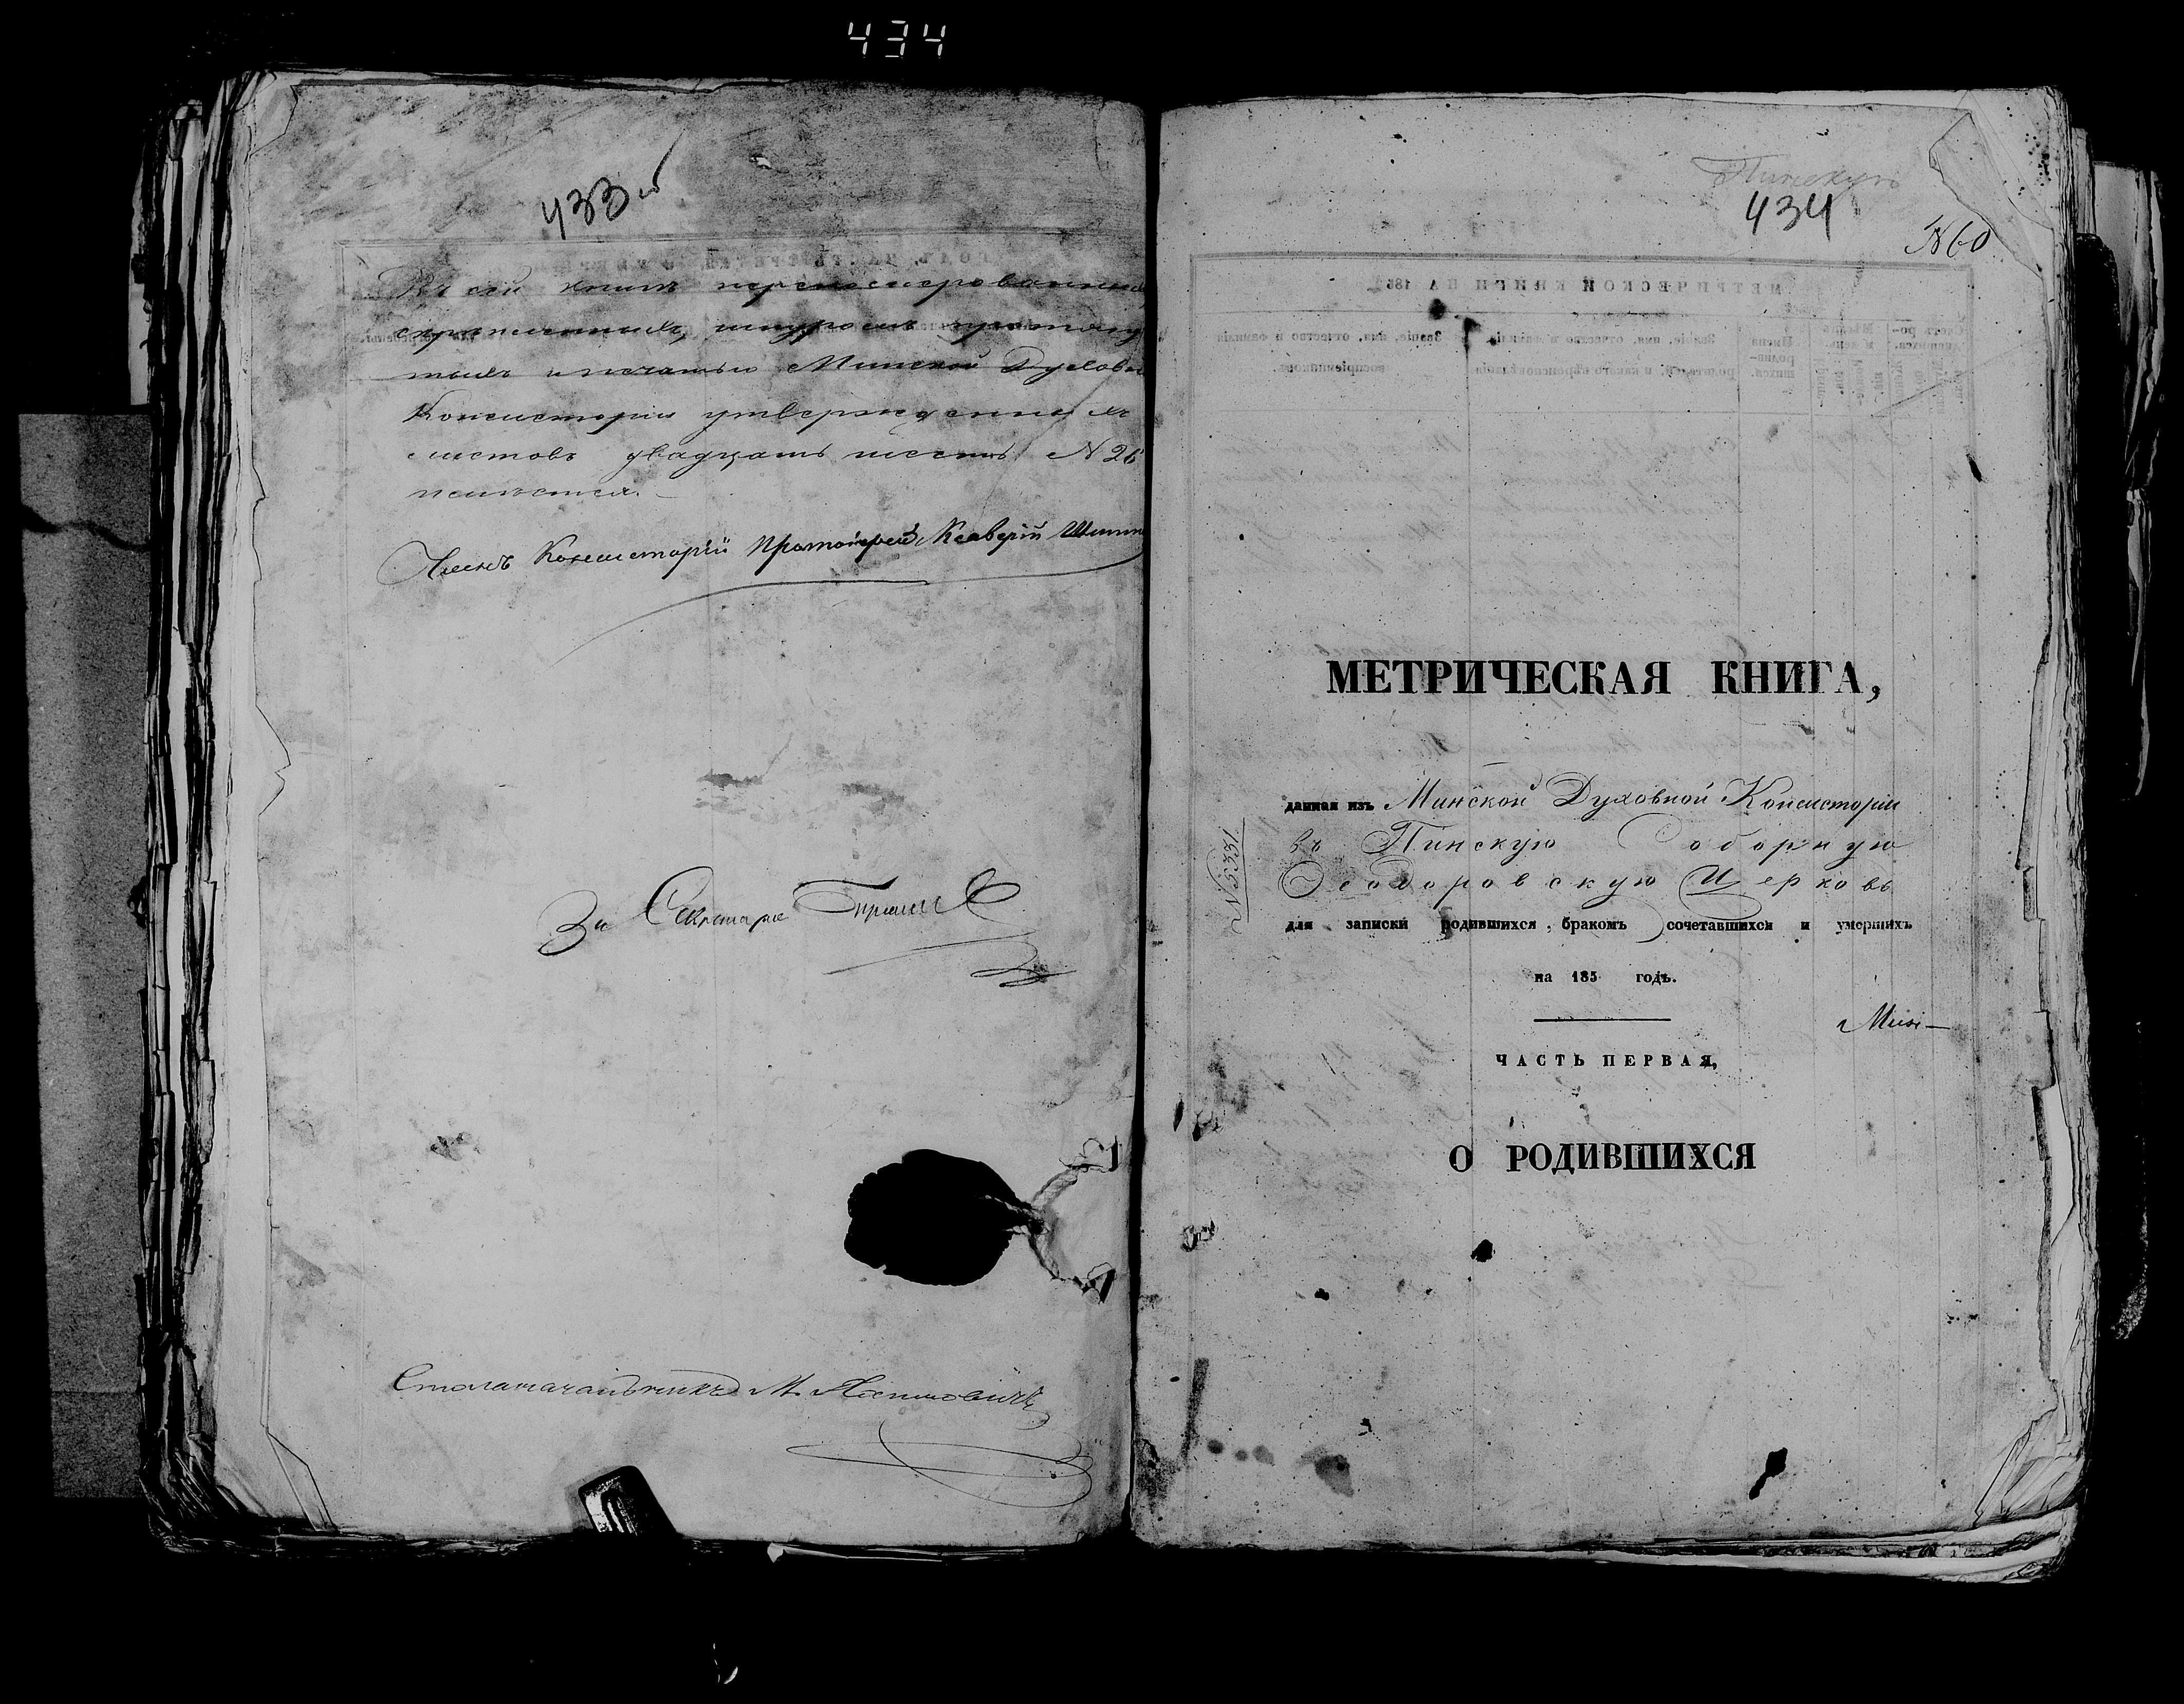 434
433 об
Въ сей книгѣ перенумерованныхъ
скрепленныхъ, шнуромъ протяну
тыхъ и печатью Минской Духовн
Консисторіи утвержденныхъ
листовъ двадцать шесть N 26
Членъ Консисторіи Протоіерей Ксаверій
За Секретаря
Столоначальникъ М.
Пинскую
434
N 60
МЕТРИЧЕСКАЯ КНИГА,
данная изъ Минской Духовной Консисторіи
въ Пинскую Соборную
Ѳеодоровскую Церковь
N 5331
для записки родившихся, бракомъ сочетавшихся и умершихъ
на 185 годъ.
ЧАСТЬ ПЕРВАЯ,
О РОДИВШИХСЯ